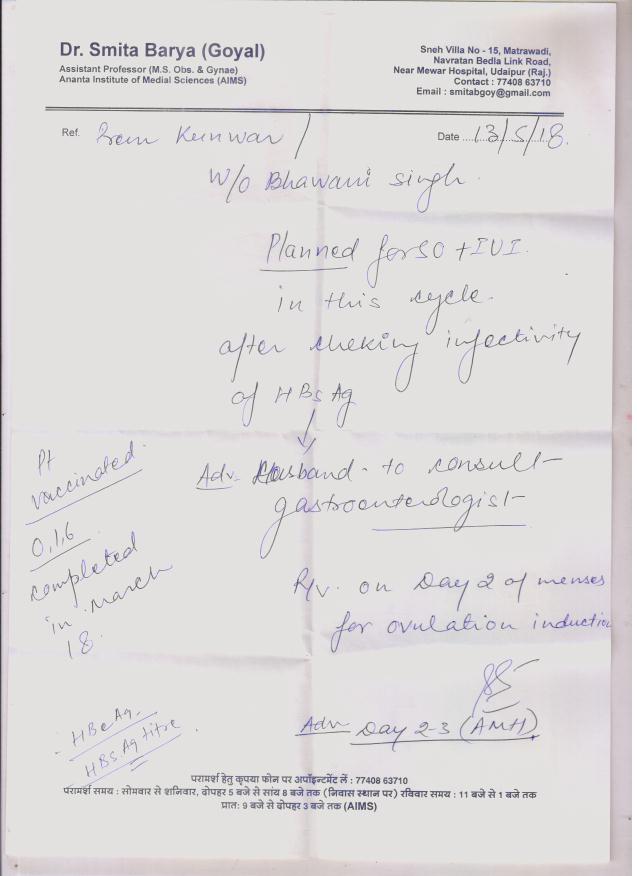 Dr. Smita Barya (Goyal)
Assistant Professor (M.S. Obs. & Gynae)
Ananta Institute of Medial Sciences (AIMS)
Sneh Villa No - 15, Matrawadi,
Navratan Bedla Link Road,
Near Mewar Hospital, Udaipur (Raj.)
Contact : 77408 63710
Email : smitabgoy@gmail.com
Ref. Kunwar /
Date ....13/5/18.
W/o Bhawani singh.
Planned for SO + IUI.
in this cycle.
after cheking infectivity
of HBsAg
↓
Adv. Husband - to consult
gastroenterologist
Pt
vaccinated.
0,1,6
completed
in March
18.
R/v. on Day 2 of menses
for ovulation induction
Adv Day 2-3 (AMH)
- HBeAg.
HBsAg titre
परामर्श हेतु कृपया फोन पर अपॉइन्टमेंट लें : 77408 63710
परामर्श समय : सोमवार से शनिवार, दोपहर 5 बजे से सांय 8 बजे तक (निवास स्थान पर) रविवार समय : 11 बजे से 1 बजे तक
प्रातः 9 बजे से दोपहर 3 बजे तक (AIMS)